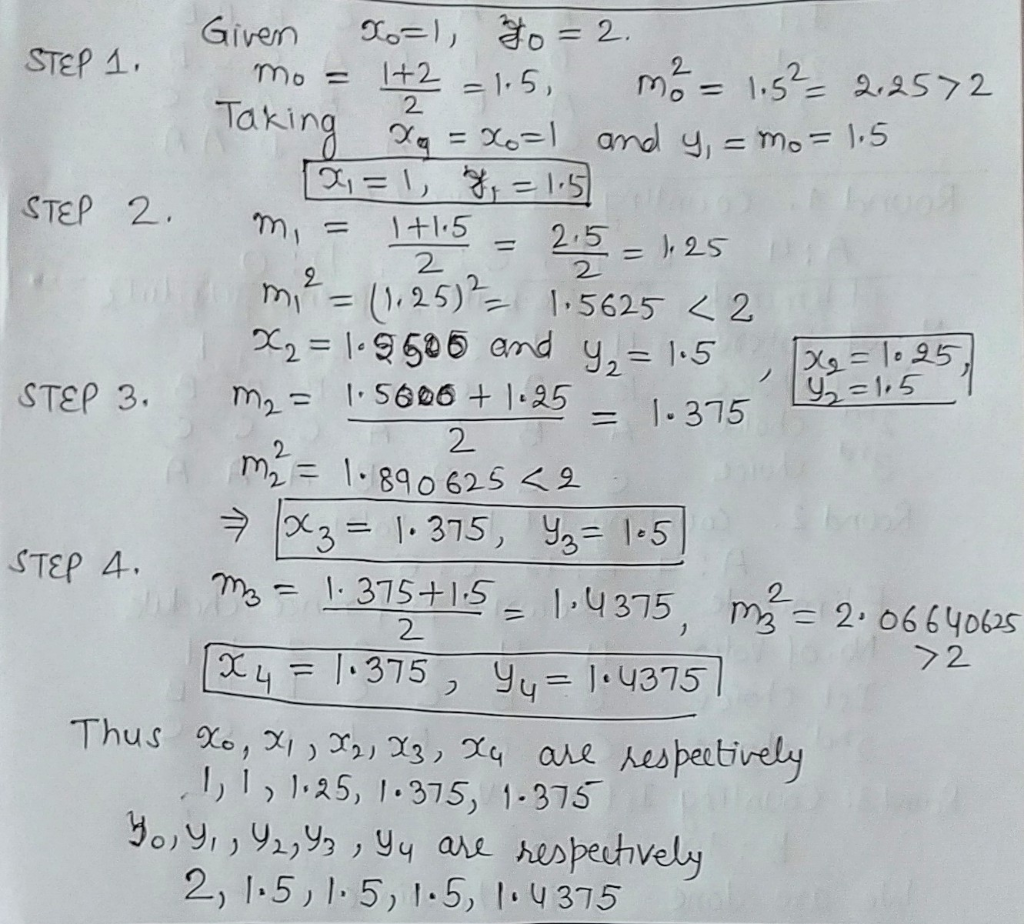 Given x₀=1, y₀ = 2.
STEP 1. m₀ = (1+2)/2 = 1.5, m₀² = 1.5² = 2.25 > 2
Taking x₁ = x₀ = 1 and y₁ = m₀ = 1.5
x₁ = 1, y₁ = 1.5
STEP 2. m₁ = (1+1.5)/2 = 2.5/2 = 1.25
m₁² = (1.25)² = 1.5625 < 2
x₂ = and y₂ = 1.5, x₂ = 1.25, y₂ = 1.5
STEP 3. m₂ = ( + 1.25)/2 = 1.375
m₂² = 1.890625 < 2
⇒ x₃ = 1.375, y₃ = 1.5
STEP 4. m₃ = (1.375+1.5)/2 = 1.4375, m₃² = 2.06640625 > 2
x₄ = 1.375, y₄ = 1.4375
Thus x₀, x₁, x₂, x₃, x₄ are respectively
1, 1, 1.25, 1.375, 1.375
y₀, y₁, y₂, y₃, y₄ are respectively
2, 1.5, 1.5, 1.5, 1.4375